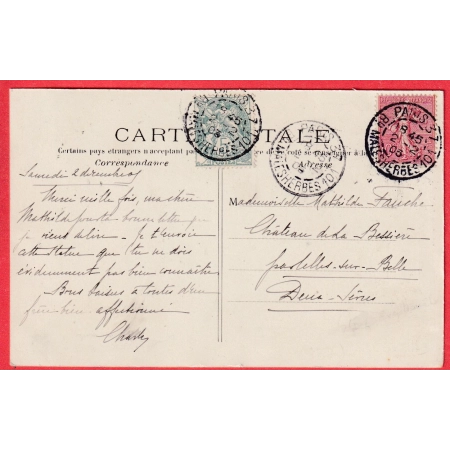 CARTE POSTALE
Certains pays étrangers n'acceptant pas de ce côté se
Correspondance
Adresse
PARIS 37
Bd MALESHERBES 101
PARIS 37
MALESHERBES 101
PARIS 37
Bd MALESHERBES 101
Samedi 2
Merci mille fois, ma chère
Mathilde bonne lettre que
je viens de lire. Je t'envoie
cette statue que tu ne dois
évidemment pas bien connaître
Bons baisers à toutes d'un
frère bien affectionné
Charley
Mademoiselle Mathilde Fauche
Château de la Bessière
sur-Belle
Deux-Sèvres